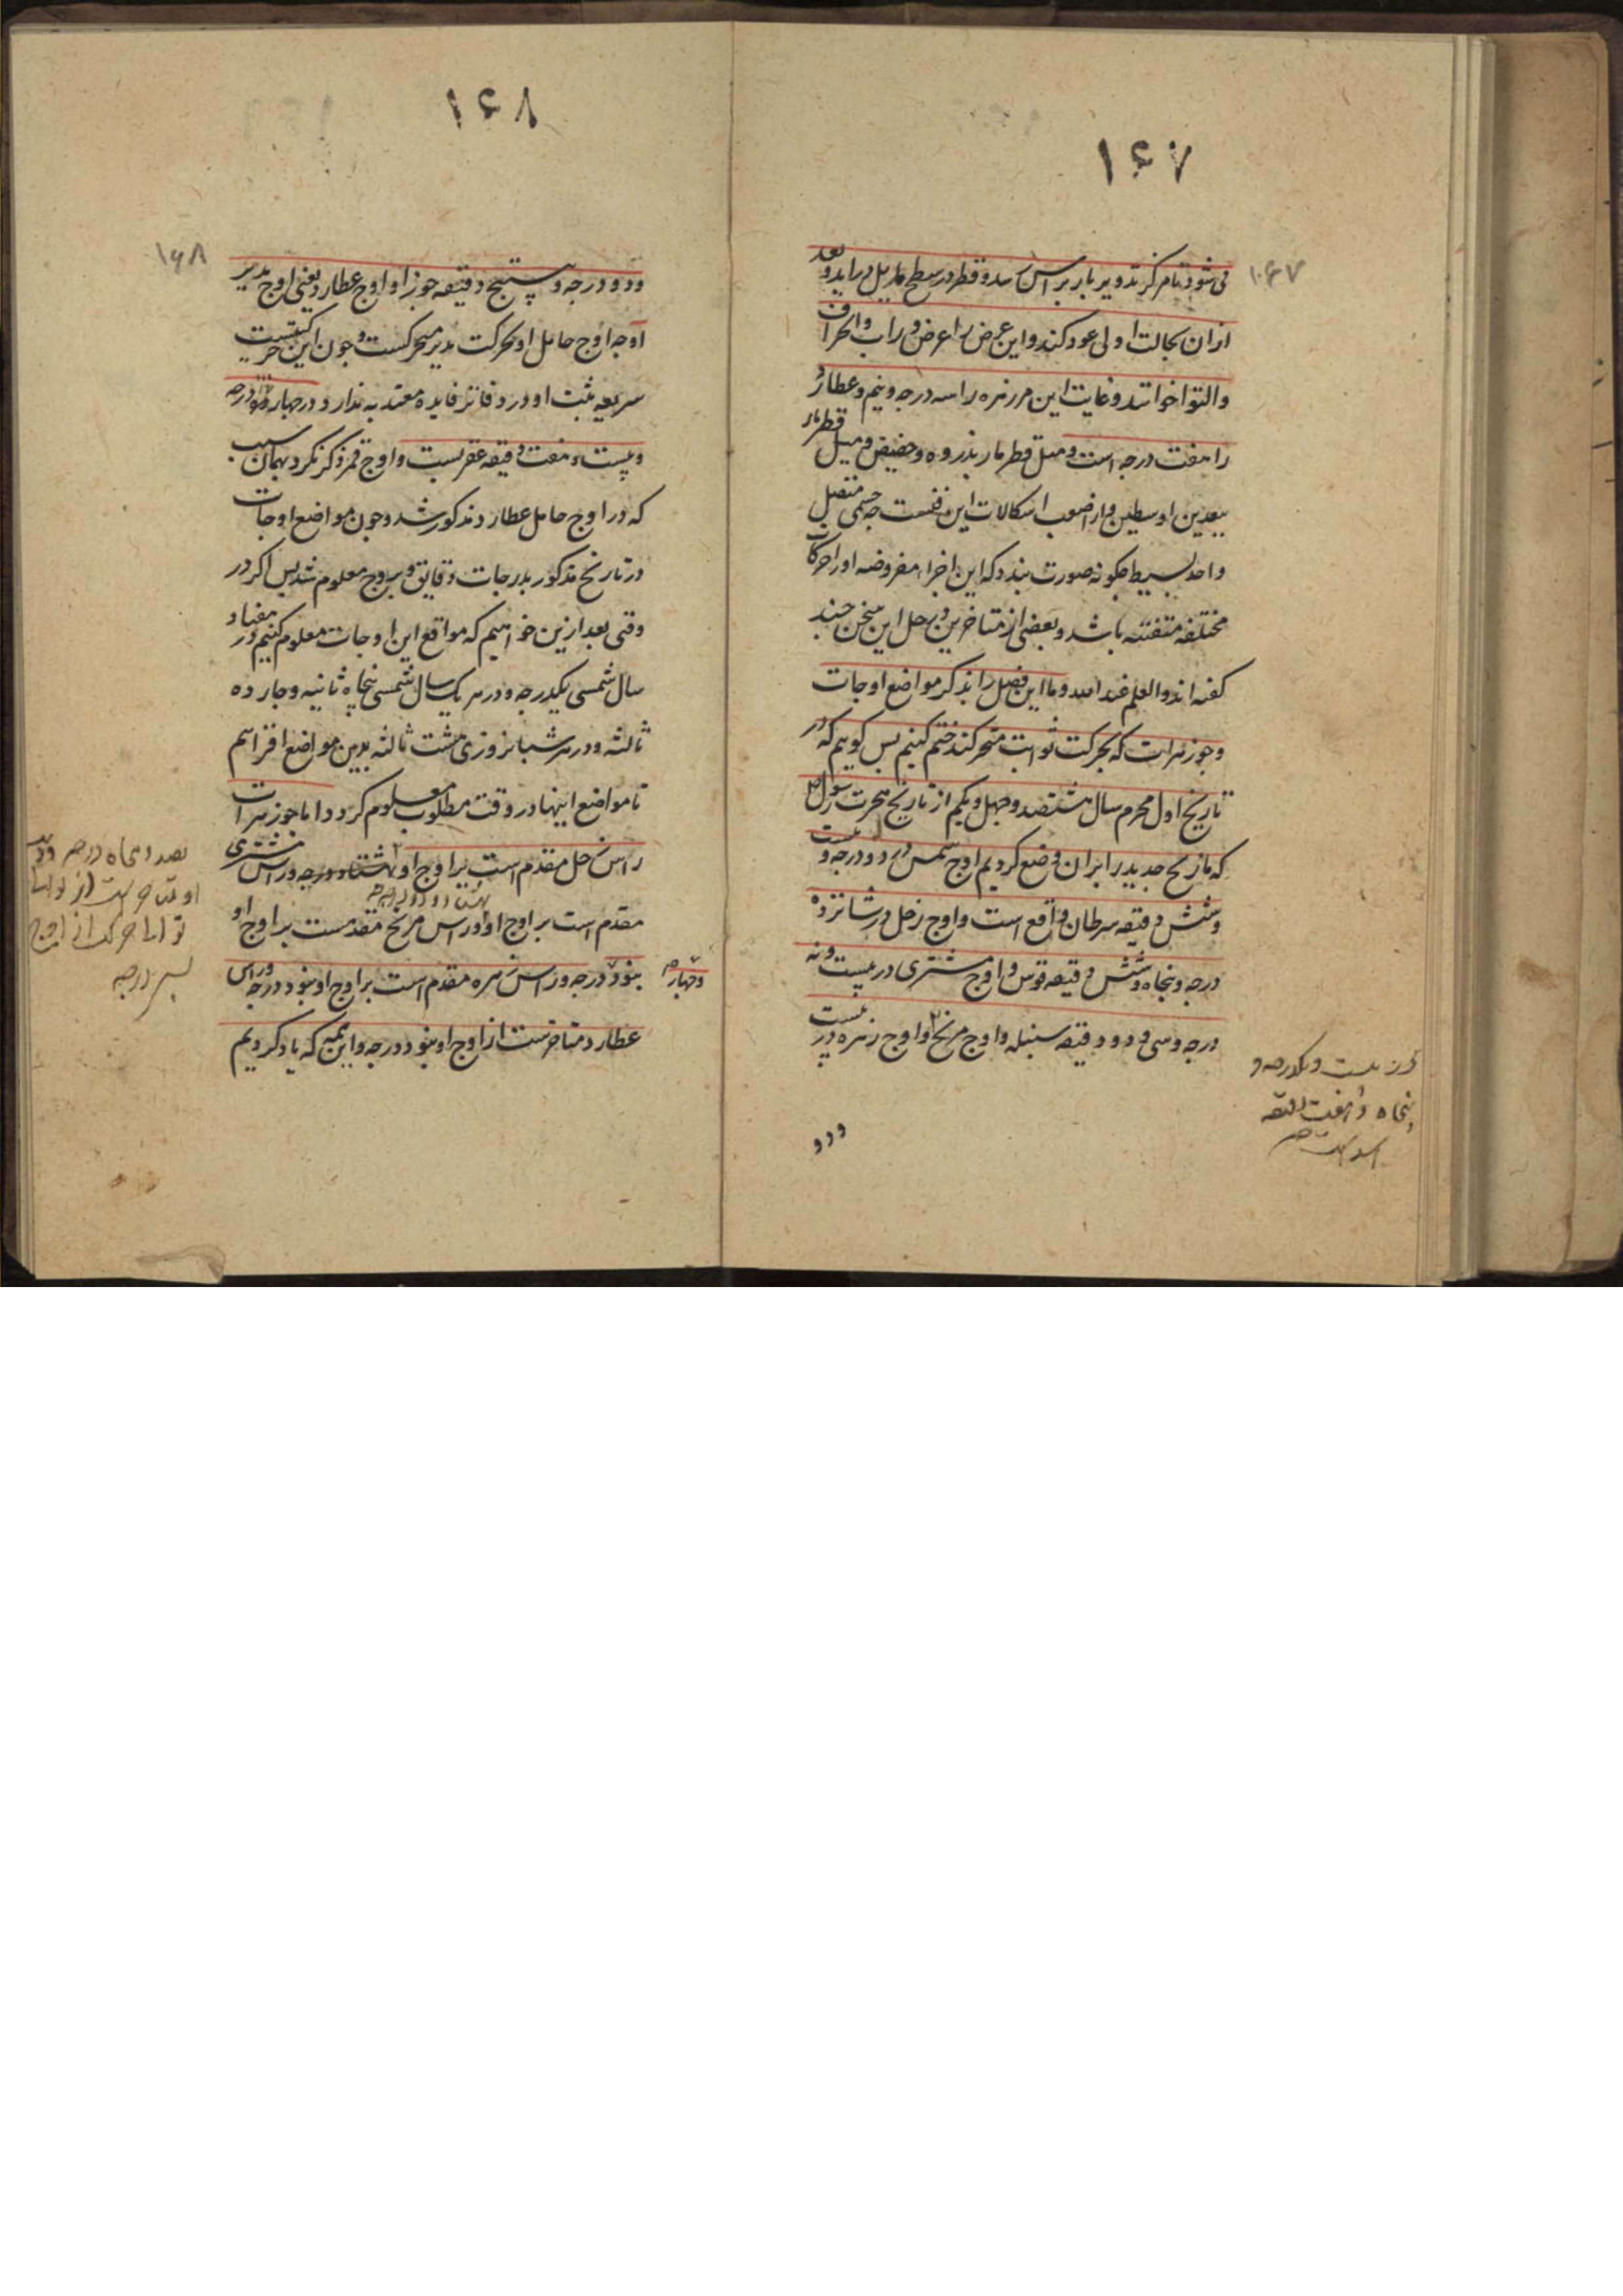 ۱۶۷
۱۰۶۷
می شود تا مرکز تدویر بار براس رسد و قطر در سطح مایل در اید و بعد
ازان بحالت اولی عود کند و این عرض را عرض وراب و انحراف
والتوا خوانند و غایت این مر زهره را سه درجه و نیم و عطارد
را هفت درجه است و میل قطر مار بذروه و حضیض و میل قطر مار
ببعدین اوسطین و از اصعب اشکالات این فنست چه جسمی متصل
واحد بسیط چکونه صورت بندد که این اجزاء مفروضه او را حرکات
مختلفه متفننه باشد و بعضی از متاخرین در حل این سخن چند
کفته اند و العلم عند الله و ما این فصل را بذکر مواضع اوجات
و جوزهرات که بحرکت ثوابت متحرکند ختم کنیم پس کوییم که در
تاریخ اول محرم سال هشتصد و چهل و یکم از تاریخ هجرت رسول
که ما زیج جدید را بران وضع کردیم اوج شمس در دو درجه و بیست
و شش دقیقه سرطان واقع است و اوج زحل در شانزده
درجه و پنجاه و شش دقیقه قوس و اوج مشتری در بیست و نه
درجه و سی و دو دقیقه سنبله و اوج مریخ و اوج زهره در بیست
در بیست و یکدرجه و
پنجاه و هفت دقیقه
اسد است
ودو
۱۶۸
۱۶۸
ودو درجه و بیست پنج دقیقه جوزا و اوج عطارد یعنی اوج مدیر
او چه اوج حامل او بحرکت مدیر متحرکست و چون این حرکتیست
سریعه ثبت او در دفاتر فایده معتد به ندارد در چهار درجه
و بیست و هفت دقیقه عقربست و اوج قمر ذکر نکرد بهمان سبب
که در اوج حامل عطارد مذکور شد و چون مواضع اوجات
در تاریخ مذکور بدرجات و دقایق و بروج معلوم شد پس اکر در
وقتی بعد ازین خواهیم که مواقع این اوجات معلوم کنیم در هفتاد
سال شمسی یکدرجه و در هر یک سال شمسی پنجاه ثانیه و چهارده
ثالثه و در هر شبانروزی هشت ثالثه بدین مواضع افزاییم
تا مواضع اینها در وقت مطلوب معلوم کردد اما جوزهرات
راس زحل مقدم است بر اوج او بهشتاد درجه و راس مشتری
مقدم است بر اوج او و راس مریخ مقدمست بر اوج او
بنود درجه و راس زهره مقدم است بر اوج او بنود درجه و راس
وچهار
عطارد متاخرست از اوج او بنود درجه و این همه که یاد کردیم